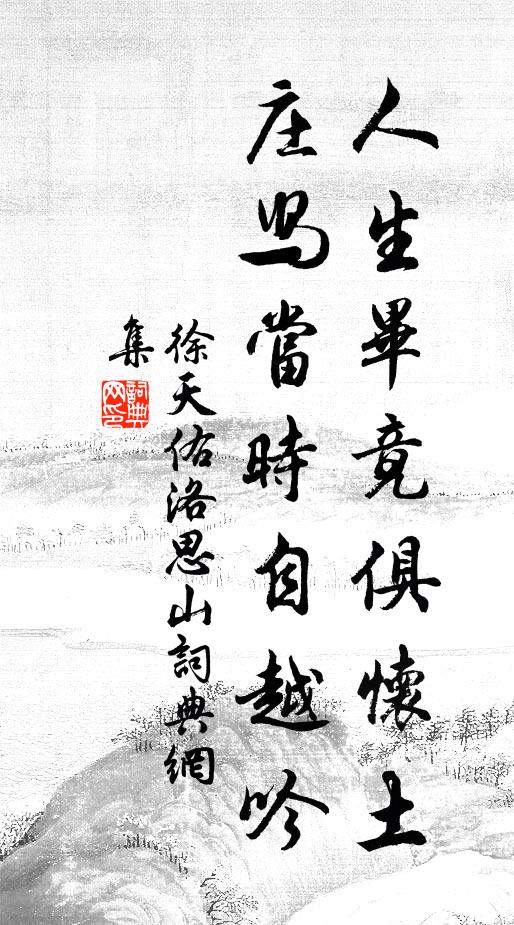 人生畢竟俱懷土
庄舄當時自越吟
徐天佑洛思山詞典網
集
詞典網印